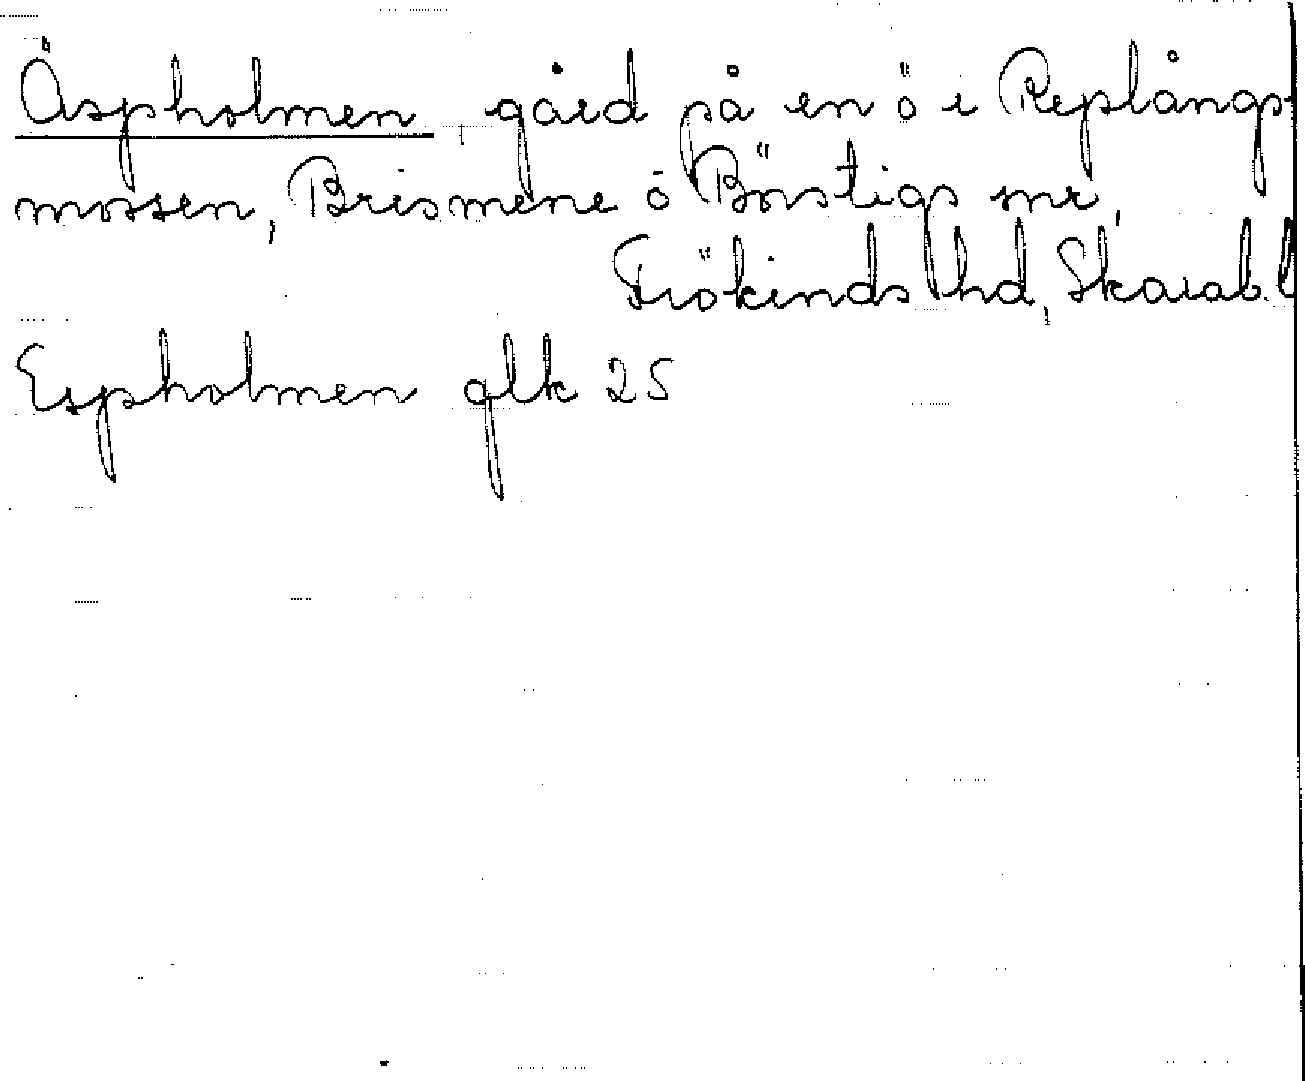 Äspholmen gård på en ö i Replångs-
mossen, Brismene o Börstigs snr,
Frökinds hd, Skarab. l
Espholmen glk 25